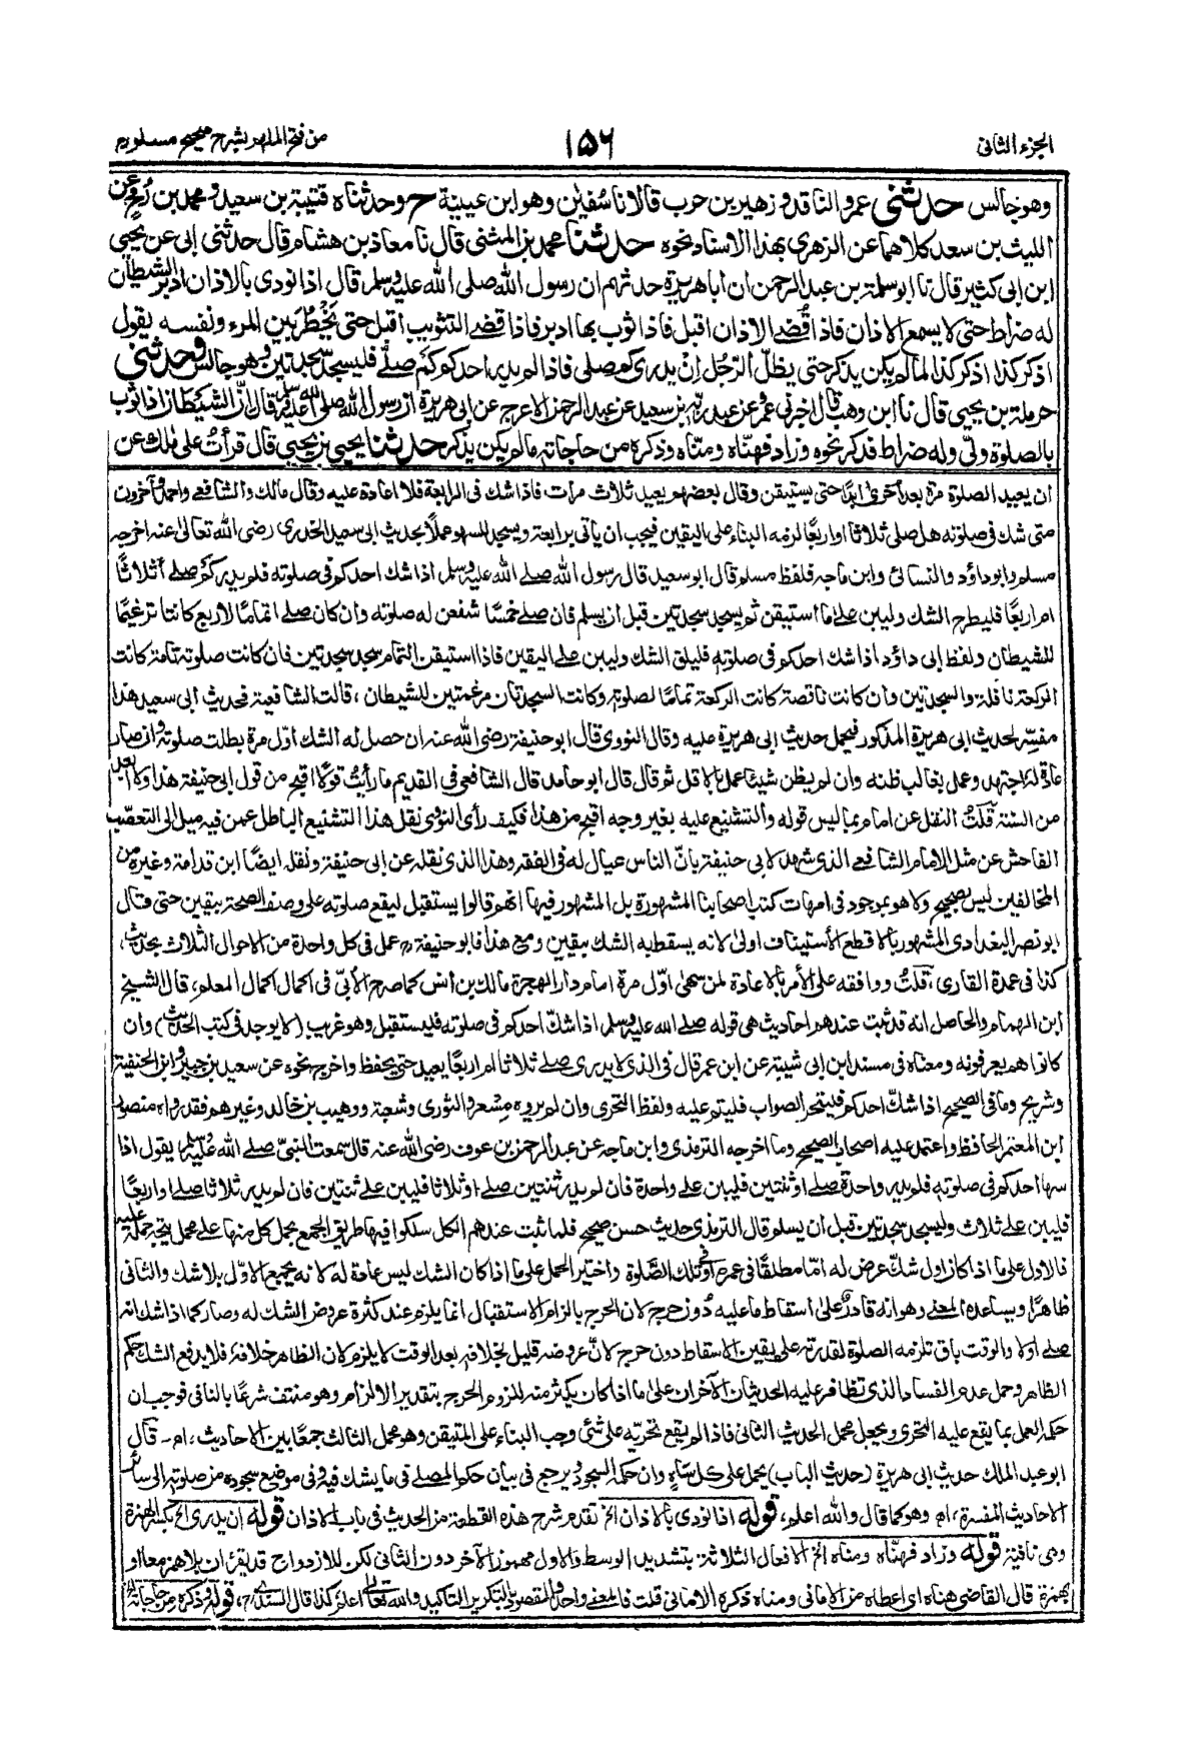 الجزء الثانی ۱۵۶ من فتح الملهم بشرح صحيح مسلم
وهو جالس حدثنى عمرو الناقد و زهير بن حرب قالا نا سفين وهو ابن عيينة ح وحدثناه قتيبة بن سعيد و محمد بن رمح عن
الليث بن سعد كلاهما عن الزهرى بهذا الاسناد نحوه حدثنا محمد بن المثنى قال نا معاذ بن هشام قال حدثنى ابى عن يحيى
ابن ابى كثير قال نا ابو سلمة بن عبد الرحمن ان ابا هريرة حدثهم ان رسول الله صلى الله عليه وسلم قال اذا نودى بالاذان ادبر الشيطان
له ضراط حتى لا يسمع الاذان فاذا قُضى الاذان اقبل فاذا ثوب بها ادبر فاذا قضى التثويب اقبل حتى يَخْطُر بين المرء ونفسه يقول
اذكر كذا اذكر كذا لما لم يكن يذكر حتى يظلّ الرّجُل اِنْ يدرى كم صلى فاذا لم يدر احدكم كم صلّى فليسجد سجدتين وهو جالس وحدثنى
حرملة بن يحيى قال نا ابن وهب قال اخبرنى عمرو عن عبد ربه بن سعيد عن عبد الرحمن الاعرج عن ابى هريرة ان رسول الله صلى الله عليه وسلم قال انّ الشيطان اذا ثوب
بالصلوة ولّى وله ضراط فذكر نحوه وزاد فهنّاه ومنّاه وذكره من حاجاته ما لم يكن يذكر حدثنا يحيى بن يحيى قال قرأتُ على مٰلك عن
ان يعيد الصلوة مرة بعد اخرى ابدًا حتى يستيقن وقال بعضهم يعيد ثلاث مرات فاذا شك فى الرابعة فلا اعادة عليه وقال مالك والشافعى واحمد وآخرون
متى شك فى صلوته هل صلى ثلاثا او اربعًا لزمه البناء على اليقين فيجب ان يأتى برابعة ويسجد للسهو عملاً بحديث ابى سعيد الخدرى رضى الله تعالى عنه اخرجه
مسلم وابو داؤد والنسائى وابن ماجه فلفظ مسلم قال ابو سعيد قال رسول الله صلى الله عليه وسلم اذا شك احدكم فى صلوته فلم يدر كم صلى أثلاثًا
ام اربعًا فليطرح الشك وليبن على ما استيقن ثم يسجد سجدتين قبل ان يسلم فان صلى خمسًا شفعن له صلوته وان كان صلى اتمامًا لاربع كانتا ترغيمًا
للشيطان ولفظ ابى داؤد اذا شك احدكم فى صلوته فليلق الشك وليبن على اليقين فاذا استيقن التمام سجد سجدتين فان كانت صلوته تامة كانت
الركعة نافلة والسجدتين وان كانت ناقصة كانت الركعة تمامًا لصلوته وكانت السجدتان مرغمتين للشيطان ، قالت الشافعية فحديث ابى سعيد هذا
مفسّر لحديث ابى هريرة المذكور فيحمل حديث ابى هريرة عليه وقال النووى قال ابو حنيفة رضى الله عنه ان حصل له الشك اوّل مرة بطلت صلوته وان صار
عادة له اجتهد وعمل بغالب ظنه وان لم يظن شيئا عمل بالاقل ثم قال قال ابو حامد قال الشافعى فى القديم ما رأيتُ قولًا اقبح من قول ابى حنيفة هذا ولا ابعد
من السنة قلتُ النقل عن امام بما ليس قوله والتشنيع عليه بغير وجه اقبح من هذا فكيف رأى النووى نقل هذا التشنيع الباطل عمن فيه ميل الى التعصّب
الفاحش عن مثل الامام الشافعى الذى شهد لابى حنيفة بانّ الناس عيال له فى الفقه وهذا الذى نقله عن ابى حنيفة ونقله ايضًا ابن قدامة وغيره من
المخالفين ليس بصحيح ولا هو بموجود فى امهات كتب اصحابنا المشهورة بل المشهور فيها انهم قالوا يستقبل ليقع صلوته على وصف الصحة بيقين حتى قال
ابو نصر البغدادى المشهور بالاقطع الأستيناف اولى لانه يسقط به الشك بيقين ومع هذا فابو حنيفة رح عمل فى كل واحدة من الاحوال الثلاث بحديث،
كذا فى عمدة القارى، قلتُ ووافقه على الأمر بالاعادة لمن سهى اوّل مرة امام دار الهجرة مالك بن أنس كما صرح الأبّى فى اكمال اكمال المعلم، قال الشيخ
ابن الهمام والحاصل انه قد ثبت عندهم احاديث هى قوله صلى الله عليه وسلم اذا شك احدكم فى صلوته فليستقبل وهو غريب (لا يوجد فى كتب الحديث) وان
كانوا هم يعرفونه ومعناه فى مسند ابن ابى شيبة عن ابن عمر قال فى الذى لا يدرى صلى ثلاثا ام اربعًا يعيد حتى يحفظ واخرج نحوه عن سعيد بن جبير وابن الحنفية
وشريح وما فى الصحيح اذا شكّ احدكم فليتحر الصواب فليتم عليه ولفظ التحرى وان لم يروه مسعر والثورى وشعبة ووهيب بن خالد وغيرهم فقد رواه منصور
ابن المعتمر الحافظ واعتمد عليه اصحاب الصحيح وما اخرجه الترمذى وابن ماجة عن عبد الرحمن بن عوف رضى الله عنه قال سمعت النبىّ صلى الله عليه وسلم يقول اذا
سها احدكم فى صلوته فلم يدر واحدة صلى او ثنتين فليبن على واحدة فان لم يدر ثنتين صلى او ثلاثا فليبن على ثنتين فان لم يدر ثلاثا صلى او اربعًا
فليبن على ثلاث وليسجد سجدتين قبل ان يسلم قال الترمذى حديث حسن صحيح فلما ثبت عندهم الكل سلكوا فيها طريق الجمع بحمل كل منها على محمل يتجه حمله عليه
فالاول على ما اذا كان اول شكّ عرض له امّا مطلقًا فى عمره او فى تلك الصَّلوة واختير الحمل على ما اذا كان الشك ليس عادة له لانه يجمع الاوّل بلا شك والثانى
ظاهرًا ويساعده المعنى وهو انه قادر على اسقاط ما عليه دُون حرج لان الحرج بالزام الاستقبال انما يلزم عند كثرة عروض الشك له وصار كما اذا شك انه
صلى اولا والوقت باق تلزمه الصلوة لقدرته على يقين الاسقاط دون حرج لانّ عروضه قليل بخلافه بعد الوقت لا يلزم لان الظاهر خلافه فلا يدفع الشك حكم
الظاهر وحمل عدم الفساد الذى تظافر عليه الحديثان الآخران على ما اذا كان يكثر منه للزوم الحرج بتقدير الالزام وهو منتف شرعًا بالنافى فوجب ان
حكمه العمل بما يقع عليه التحرى ويجعل محمل الحديث الثانى فاذا لم يقع تحرّيه على شئ وجب البناء على المتيقن وهو محمل الثالث جمعًا بين الاحاديث، اه۔ قال
ابو عبد الملك حديث ابى هريرة (حديث الباب) يحمل على كل ساهٍ وان حكمه السجود ويرجع فى بيان حكم المصلى فى ما يشك فيه وفى موضع سجوده من صلوته الى سائر
الاحاديث المفسرة، اه وهو كما قال والله اعلم، قوله اذا نودى بالاذان الخ تقدم شرح هذه القطعة من الحديث فى باب الاذان قوله ان يدرى الخ بكسر الهمزة
وهى نافية قوله وزاد فهنّاه ومناه الخ الافعال الثلاثة بتشديد الوسط والاول مهموز الآخر دون الثانى لكن للازدواج قد يقرءان بلا همز معا او
بهمزة قال القاضى هناه اى اعطاه من الامانى ومناه ذكره الامانى قلت فالمعنى واحد والمقصود بالتكرير التاكيد والله تعالى اعلم كذا قال السندى رح، قوله وذكره من حاجاته الخ